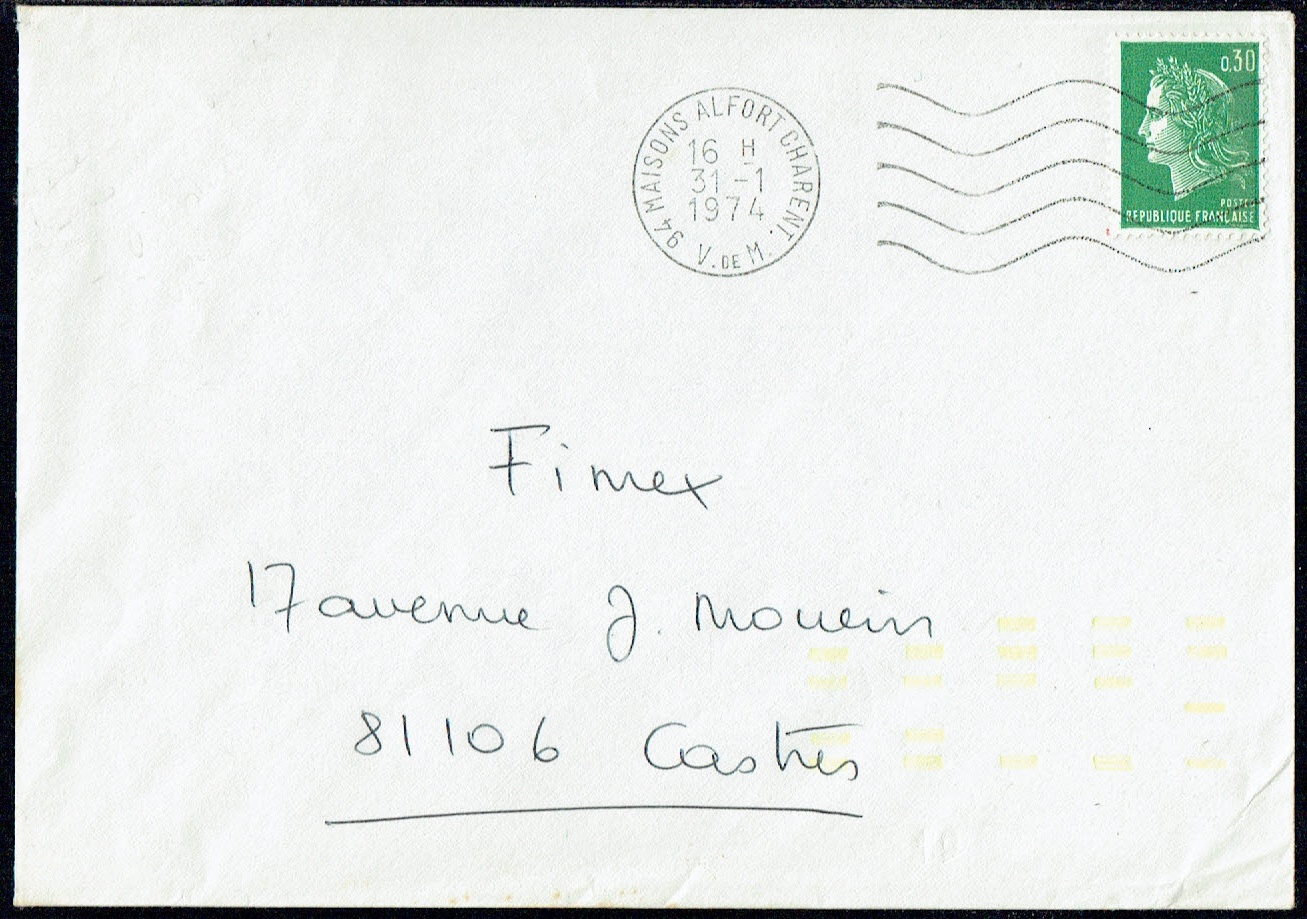 94 MAISONS ALFORT CHARENT.
16 H
31 -1
1974
V. DE M.
0,30
POSTES
REPUBLIQUE FRANÇAISE
Fimex
17 avenue J. Moulin
81106 Castres